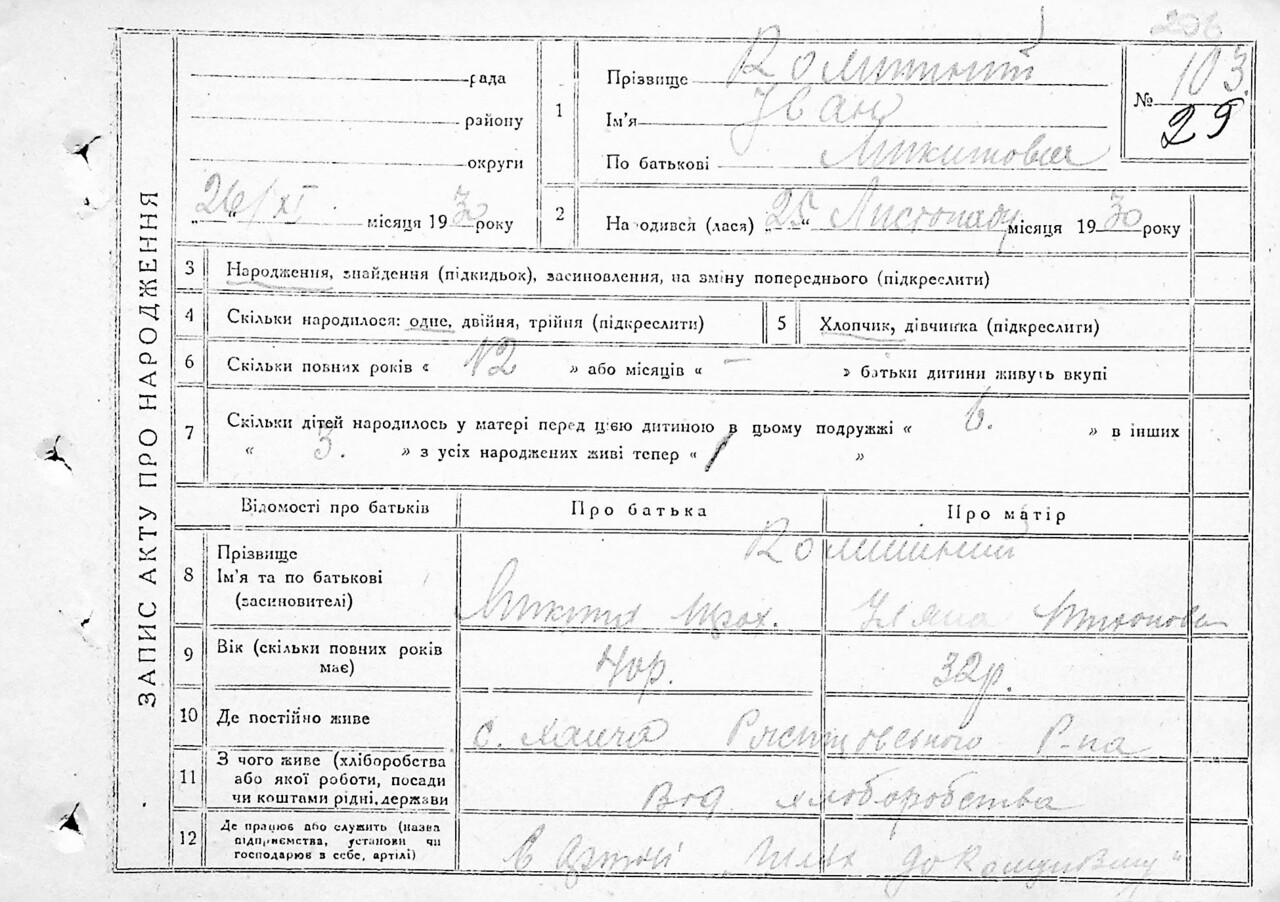 206
ЗАПИС АКТУ ПРО НАРОДЖЕННЯ
рада
району
округи
„26/XI“ місяця 1930 року
1
Прізвище
Ім'я Іван
По батькові Микитович
№ 103.
29
2
Народився (лася) „25“ Листопаду місяця 1930 року
3 Народження, знайдення (підкидьок), засиновлення, на зміну попереднього (підкреслити)
4 Скільки народилося: одне, двійня, трійня (підкреслити)
5 Хлопчик, дівчинка (підкреслити)
6 Скільки повних років « 12 » або місяців « – » батьки дитини живуть вкупі
7 Скільки дітей народилось у матері перед цією дитиною в цьому подружжі « 6. » в інших
« 3. » з усіх народжених живі тепер « »
Відомості про батьків
Про батька
Про матір
8 Прізвище
Ім'я та по батькові
(засиновителі)
Микита Уляна
9 Вік (скільки повних років має) 40р. 32р.
10 Де постійно живе с. Р-на
11 З чого живе (хліборобства
або якої роботи, посади
чи коштами рідні, держави
Від хліборобства
12 Де працює або служить (назва
підприємства, установи чи
господарює в себе, артілі)
В Артілі „Шлях до Комунізму“